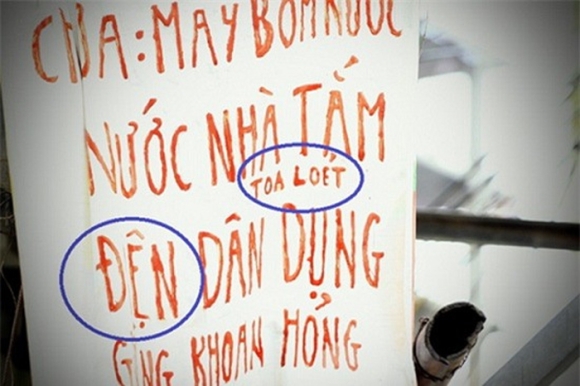 CHỮA: MAY BƠM NƯỚC
NƯỚC NHÀ TẤM
TOA LOET
ĐỆN DÂN DỤNG
GING KHOAN HỎNG